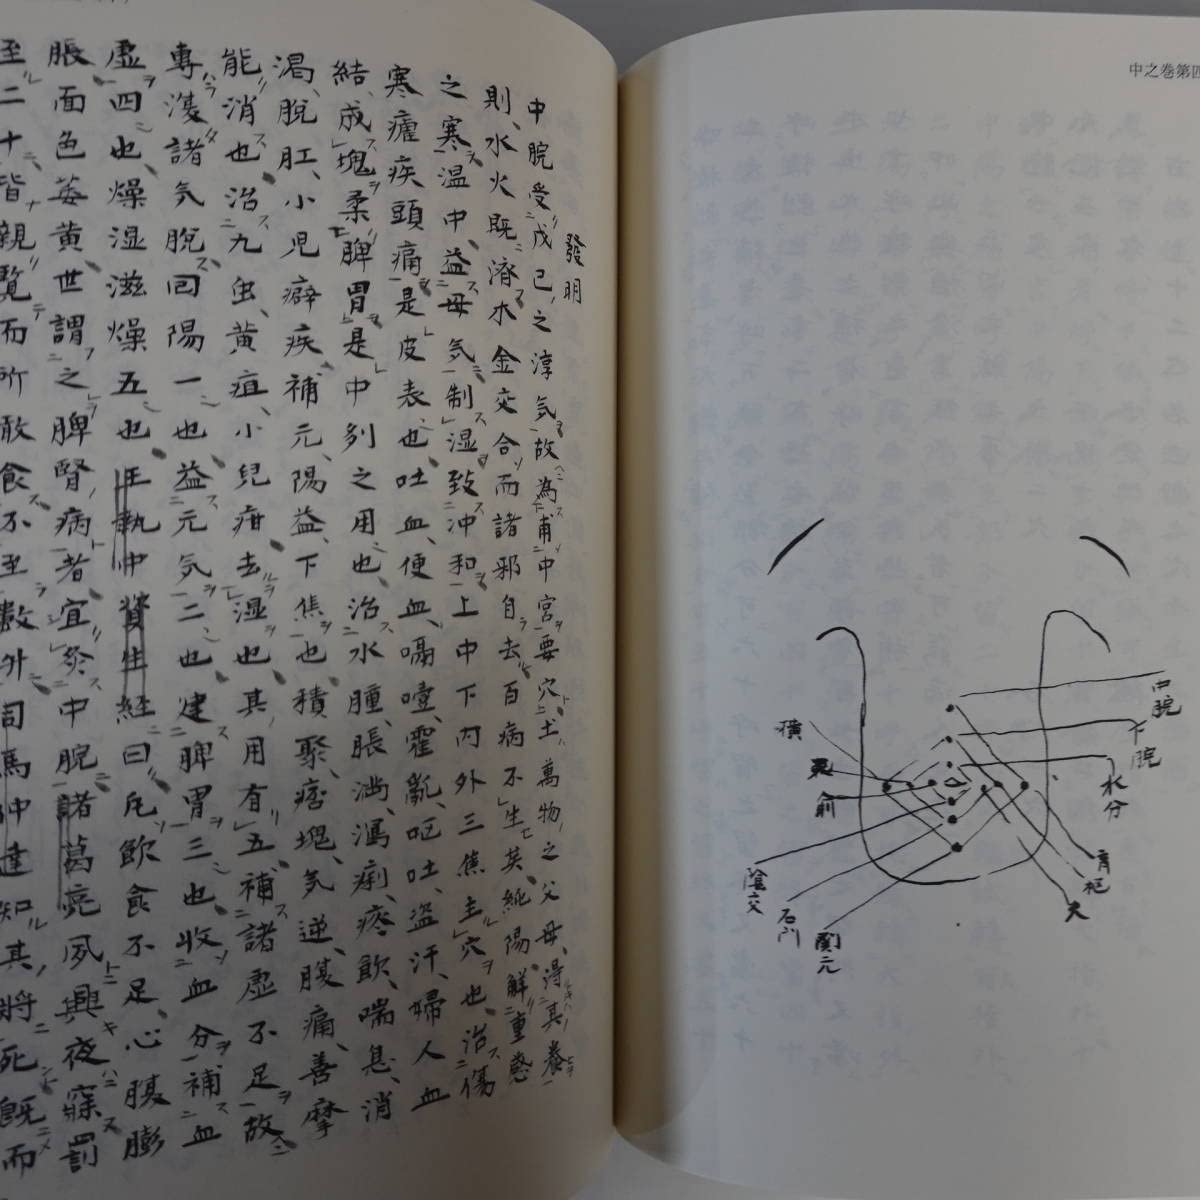 中之巻第四
中脘
下脘
水分
育
天
横
兪
陰交
石門
関元
發明
中脘受戊己之淳気故為甫中宮要穴土萬物之父母得其養
則水火既済木金交合而諸邪自去百病不生英純陽鮮重感
之寒温中益母気制湿致冲和上中下内外三焦主穴也治傷
寒瘧疾頭痛是皮表也吐血便血嗝噎霍亂呕吐盗汗婦人血
結成塊柔脾胃是中刻之用也治水腫脹満瀉痢痰飲喘息消
渇脱肛小児癖疾補元陽益下焦也積聚痞塊気逆腹痛善摩
能消也治九虫黄疸小兒疳去湿也其用有五補諸虚不足故
專淒諸気脱回陽一也益元気二也建脾胃三也收血分補血
虚四也燥湿滋燥五也王執中資生経曰凡飲食不足心腹膨
脹面色萎黄世謂之脾腎病者宜灸中脘諸葛亮夙興夜寐罰
至二十皆親覧而所敢食不至数外司馬仲達知其將死既而